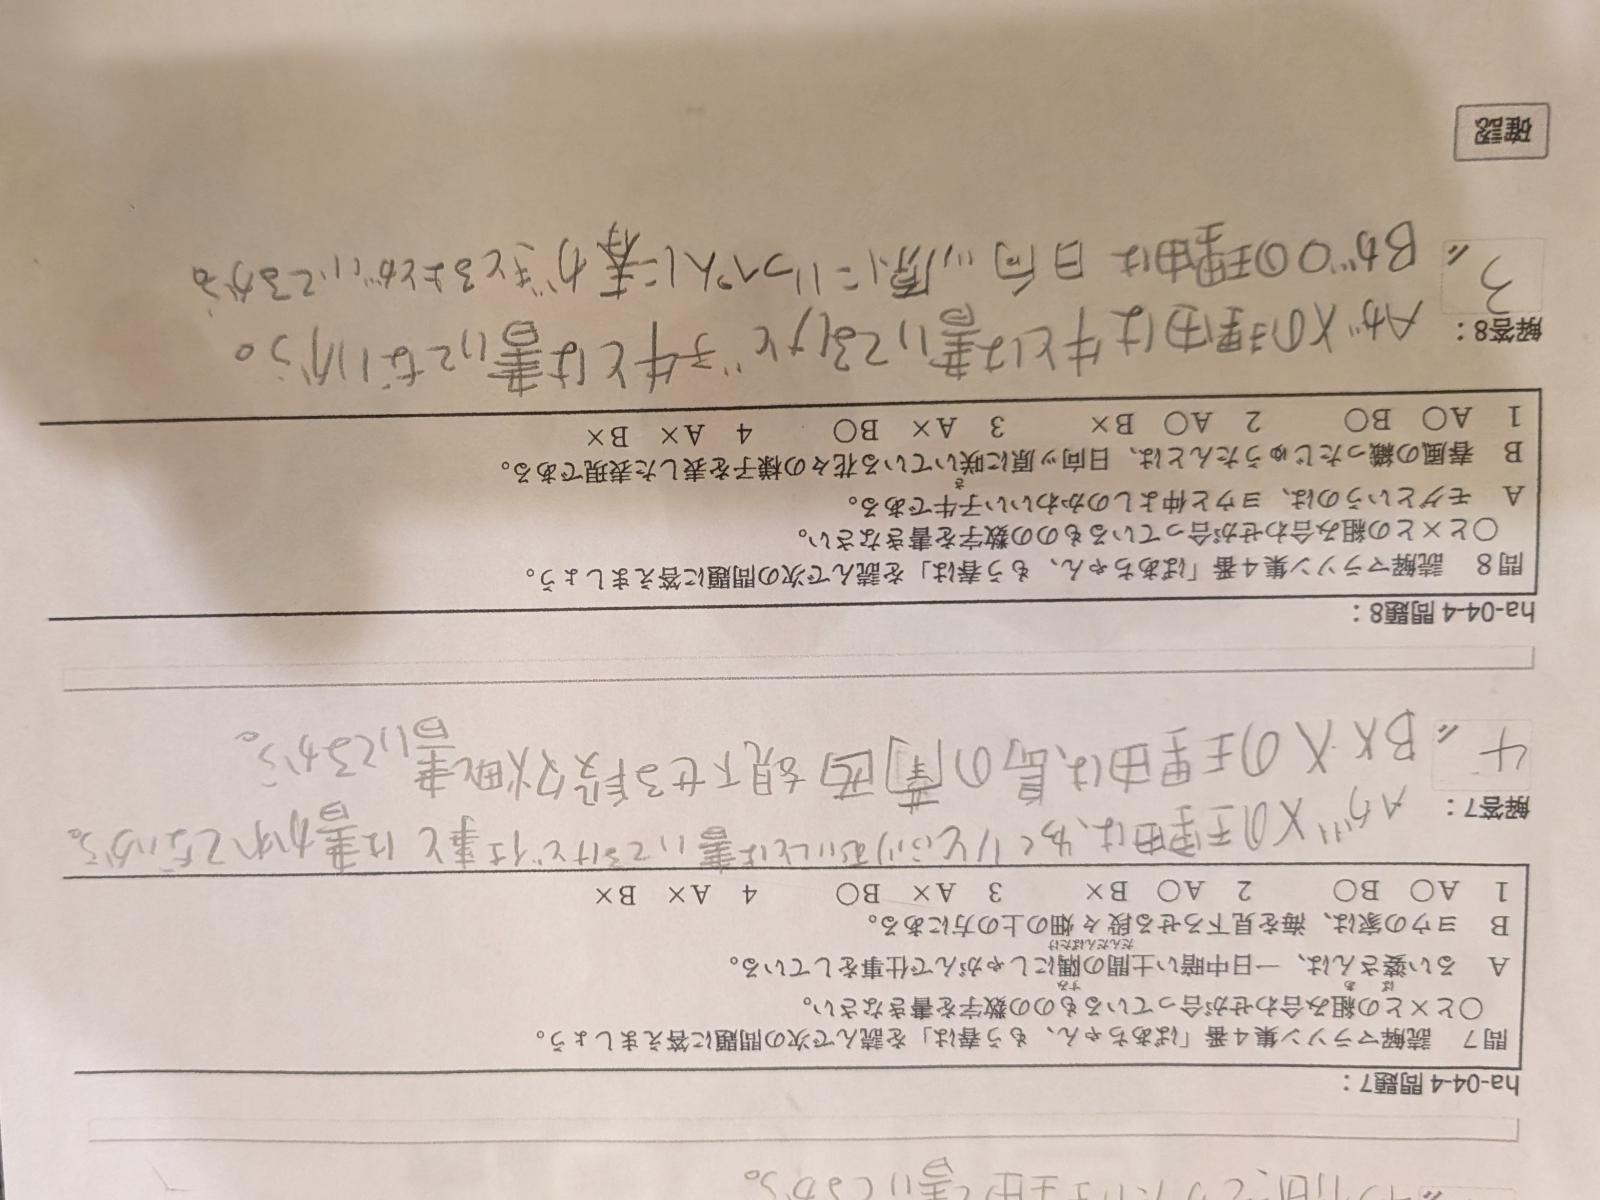 ha-04-4 問題7：
問7　読解マラソン集4番「ばあちゃん、もう春は」を読んで次の問題に答えましょう。
○と×との組み合わせが合っているものの数字を書きなさい。
A　るい婆さんは、一日中暗い土間の隅にしゃがんで仕事をしている。
B　ヨウの家は、海を見下ろせる段々畑の上の方にある。
1　A○　B○　　2　A○　B×　　3　A×　B○　　4　A×　B×
解答7：
4
Aが×の理由は、ゆくりと
とは書いてるけど仕事とは書かれてないから。
B××の理由は、島の
西 見下せる段々畑
書いてるから。
ha-04-4 問題8：
問8　読解マラソン集4番「ばあちゃん、もう春は」を読んで次の問題に答えましょう。
○と×との組み合わせが合っているものの数字を書きなさい。
A　モグというのは、ヨウと仲よしのかわいい子牛である。
B　春風の織ったじゅうたんとは、日向ッ原に咲いている花々の様子を表した表現である。
1　A○　B○　　2　A○　B×　　3　A×　B○　　4　A×　B×
解答8：
3
Aが×の理由は牛とは書いてるけど子牛とは書いてないから。
Bが○の理由は日向ッ原にいっぺんに春が
確認